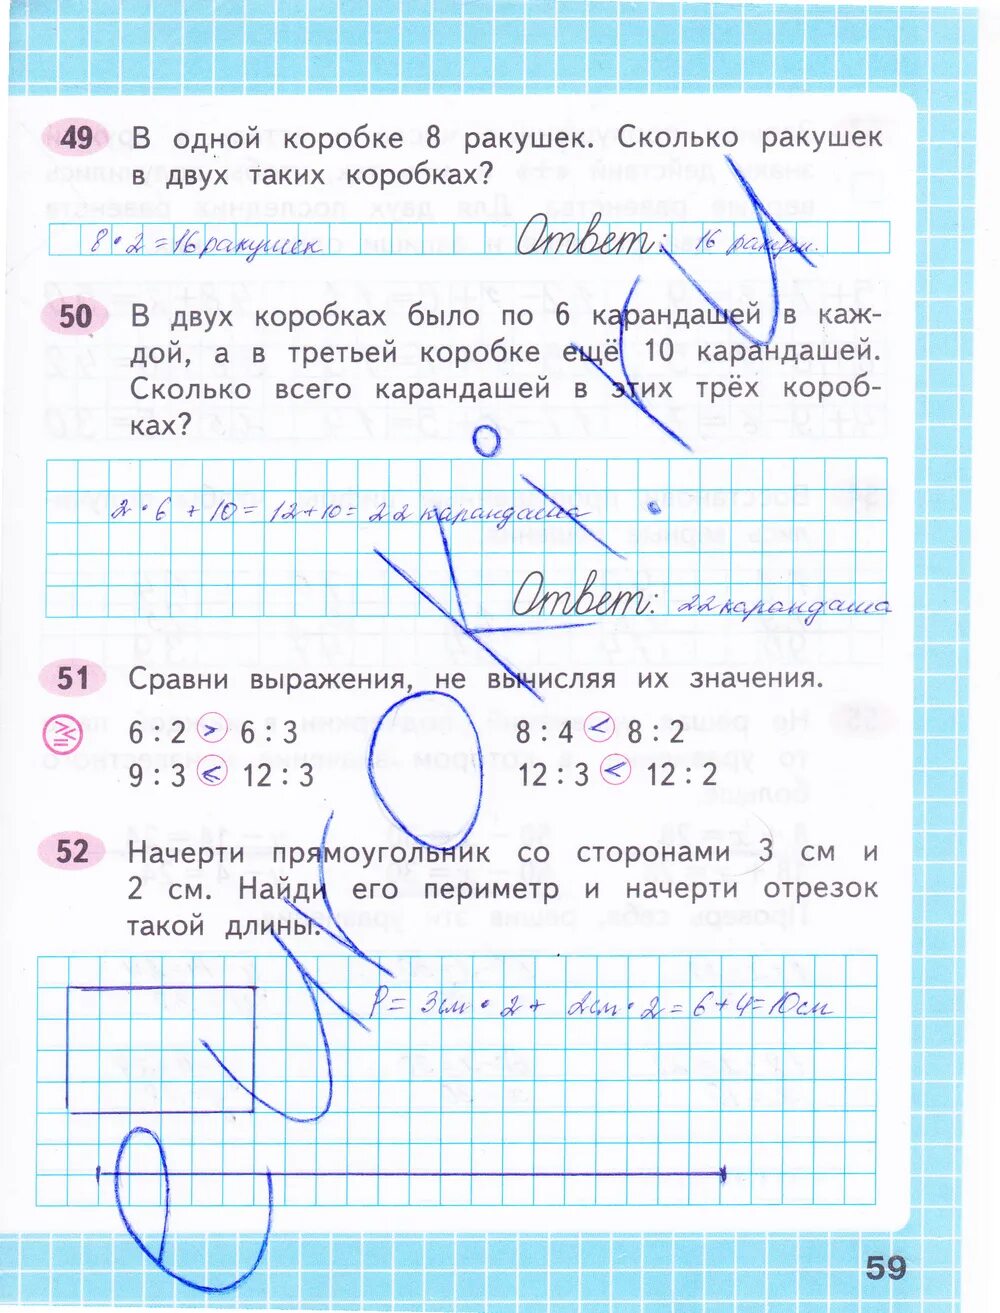 49 В одной коробке 8 ракушек. Сколько ракушек
в двух таких коробках?
8 · 2 = 16 ракушек Ответ: 16 ракуш.
50 В двух коробках было по 6 карандашей в каж-
дой, а в третьей коробке ещё 10 карандашей.
Сколько всего карандашей в этих трёх короб-
ках?
2 · 6 + 10 = 12 + 10 = 22 карандаша
Ответ: 22 карандаша
51 Сравни выражения, не вычисляя их значения.
6 : 2 > 6 : 3 8 : 4 < 8 : 2
9 : 3 < 12 : 3 12 : 3 < 12 : 2
52 Начерти прямоугольник со сторонами 3 см и
2 см. Найди его периметр и начерти отрезок
такой длины.
P = 3см · 2 + 2см · 2 = 6 + 4 = 10см
59